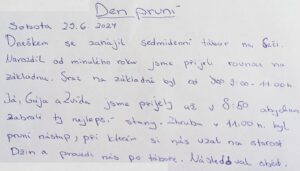 Den první
Sobota 29.6. 2024
Dneškem se zahájil sedmidenní tábor na Seči.
Narozdíl od minulého roku jsme přijeli rovnou na
základnu. Sraz na základně byl od 9:00 - 11:00 h.
Já, a Zvída jsme přijely už v 8:50 abychom
zabrali ty nejlepší stany. Zhruba v 11:00 h. byl
první nástup, při kterém si nás vzal na starost
Džin a provedl nás po táboře. Následoval oběd.